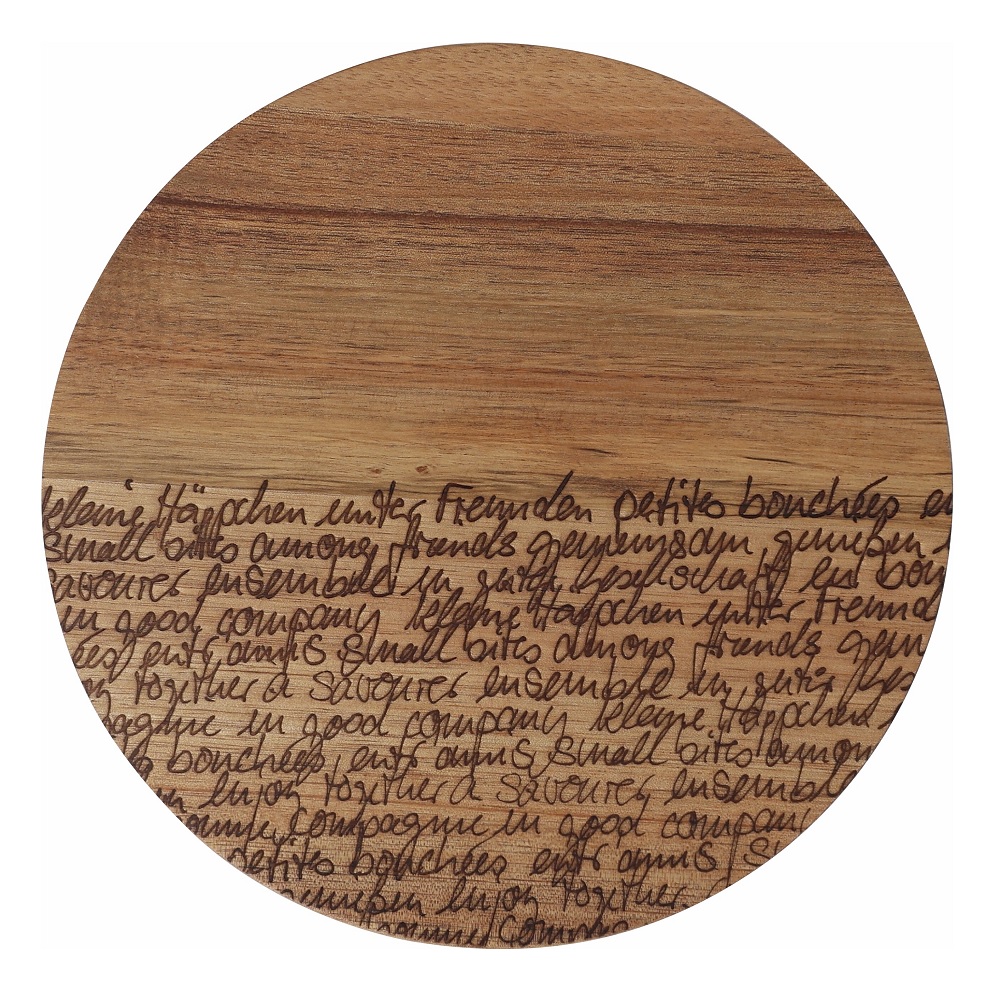 kleine Häppchen unter Freunden petites bouchées en
small bites among friends gemeinsam geniessen
savourer ensemble in guter Gesellschaft en bon
in good company kleine Häppchen unter Freund
ées entre amis small bites among friends gemein
joy together à savourer ensemble in guter Ges
pagnie in good company kleine Häppchen
s bouchées entre amis small bites among
n enjoy together à savourer ensemble
bonne compagnie in good company
petites bouchées entre amis s
geniessen enjoy together
bonne compa